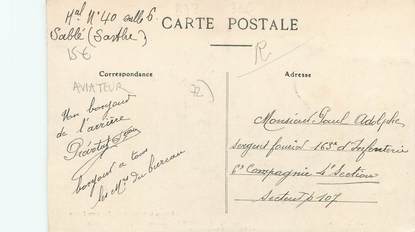 Hal N° 40 salle 6
Sablé (Sarthe)
CARTE POSTALE
15€
R
Correspondance
Adresse
AVIATEUR
72
Un bonjour
de l'arrière
bonjour a tous
les Mrs du bureau
Monsieur Paul Adolphe
sergent fourrier 165e d'Infanterie
6e Compagnie 4e Section
secteur p 107